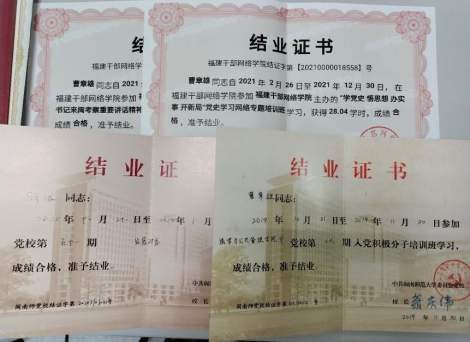 结
福建干部网络学
曹章雄同志自 2021
福建干部网络学院参加
书记来闽考察重要讲话精神
成绩合格，准予结业。
结业证书
福建干部网络学院结证字第【20210000018558】号
曹章雄同志自 2021 年 2 月 26 日至 2021 年 12 月 30 日，在
福建干部网络学院参加福建干部网络学院主办的“学党史 悟思想 办实
事 开新局”党史学习网络专题培训班学习，获得 28.04 学时，成绩合
格，准予结业。
结业证
同志：
年 月 日至 年 月
党校第 期
成绩合格，准予结业。
校长
结业证书
曹章雄同志：
2019 年 10 月 21 日至 2019 年 11 月 30 日参加
党校第 期入党积极分子培训班学习，
成绩合格，准予结业。
中共闽南师范大学委员会党校
校长
闽南师党校结证字第
2019 年 11 月 30 日